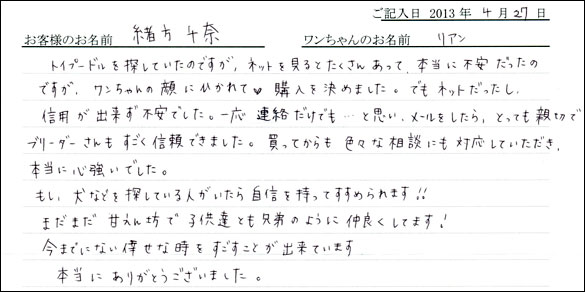 ご記入日 2013 年 4 月 27 日
お客様のお名前 緒方 千奈 ワンちゃんのお名前 リアン
トイプードルを探していたのですが、ネットを見るとたくさんあって、本当に不安だったの
ですが、ワンちゃんの顔にひかれて♥購入を決めました。でもネットだったし、
信用が出来ず不安でした。一応連絡だけでも…と思い、メールをしたら、とっても親切で
ブリーダーさんもすごく信頼できました。買ってからも色々な相談にも対応していただき、
本当に心強いでした。
もし、犬などを探している人がいたら自信を持ってすすめられます!!
まだまだ甘えん坊で子供達とも兄弟のように仲良くしてます!
今までにない倖せな時をすごすことが出来ています
本当にありがとうございました。